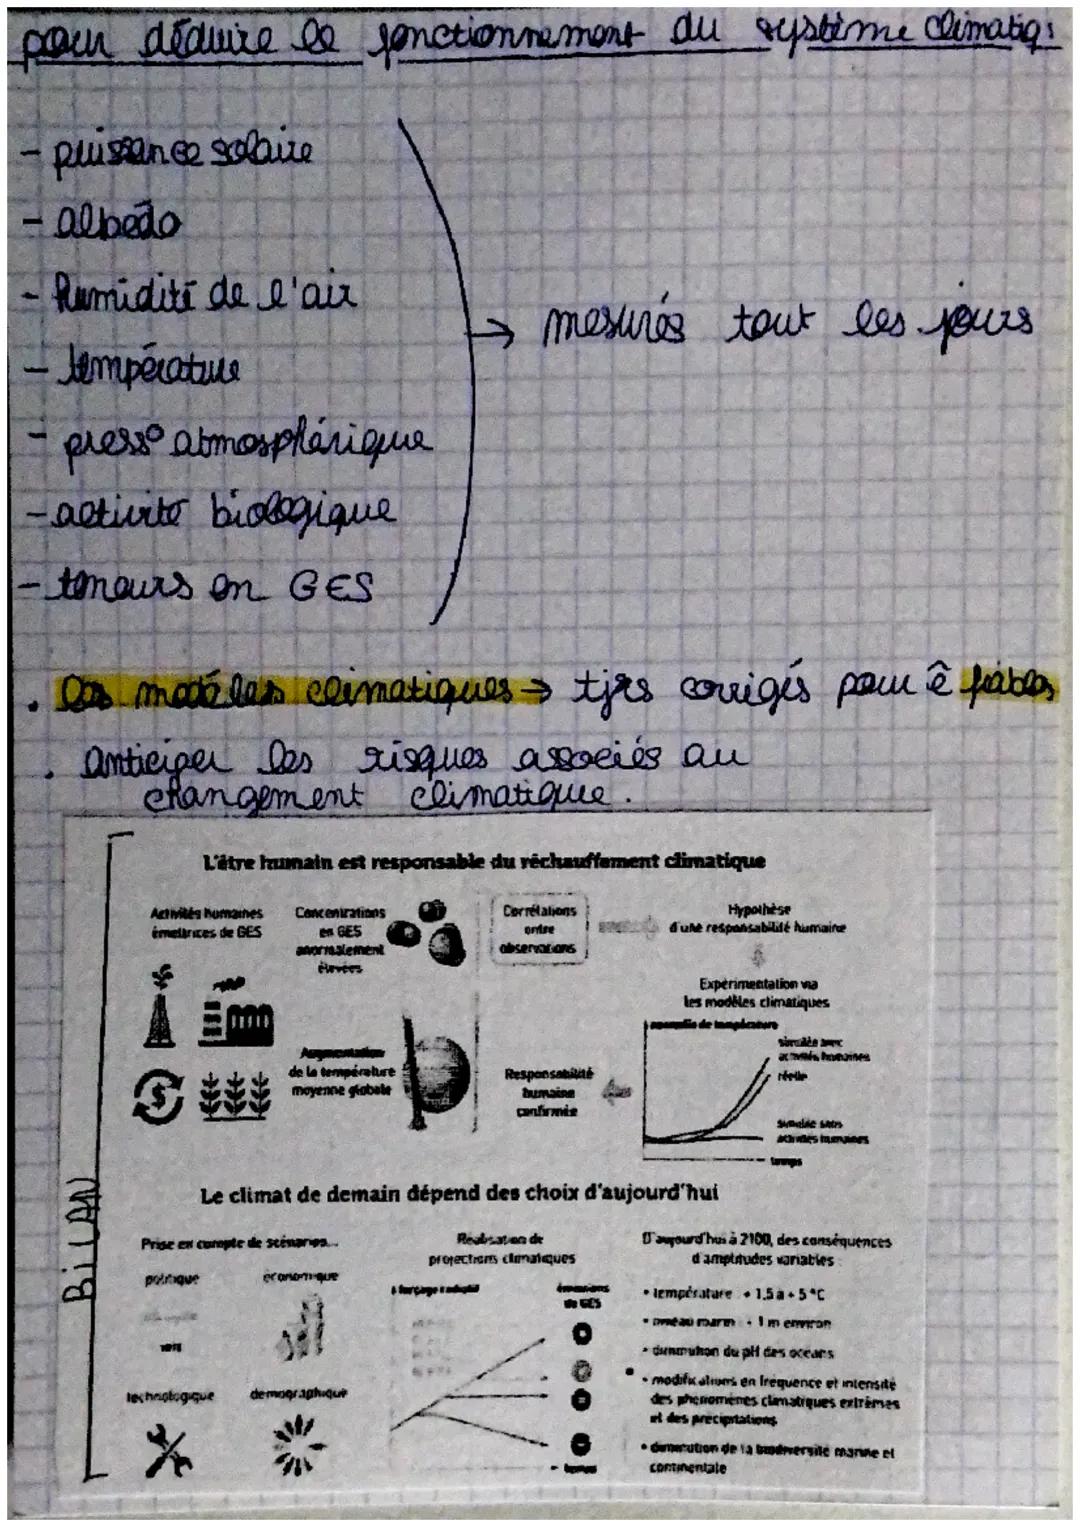 pour déduire le fonctionnement du système climatiq:
- puissance solaire
- albédo
- humidité de l'air
- température
- press° atmosphérique
- activité biologique
- teneurs en GES
→ mesurés tout les jours
. Les modèles climatiques → tjrs corrigés pour ê fiables
. anticiper les risques associés au
changement climatique.
BiLAN
L'être humain est responsable du réchauffement climatique
Activités humaines
émettrices de GES
Concentrations
en GES
anormalement
élevées
Augmentation
de la température
moyenne globale
Corrélations
entre
observations
Hypothèse
d'une responsabilité humaine
Expérimentation via
les modèles climatiques
anomalie de température
simulée avec
activités humaines
réelle
simulée sans
activités humaines
temps
Responsabilité
humaine
confirmée
Le climat de demain dépend des choix d'aujourd'hui
Prise en compte de scénarios...
politique
économique
technologique
démographique
Réalisation de
projections climatiques
forçage radiatif
émissions
de GES
temps
D'aujourd'hui à 2100, des conséquences
d'amplitudes variables
• température + 1,5 à + 5 °C
• niveau marin + 1 m environ
• diminution du pH des océans
• modifications en fréquence et intensité
des phénomènes climatiques extrêmes
et des précipitations
• diminution de la biodiversité marine et
continentale